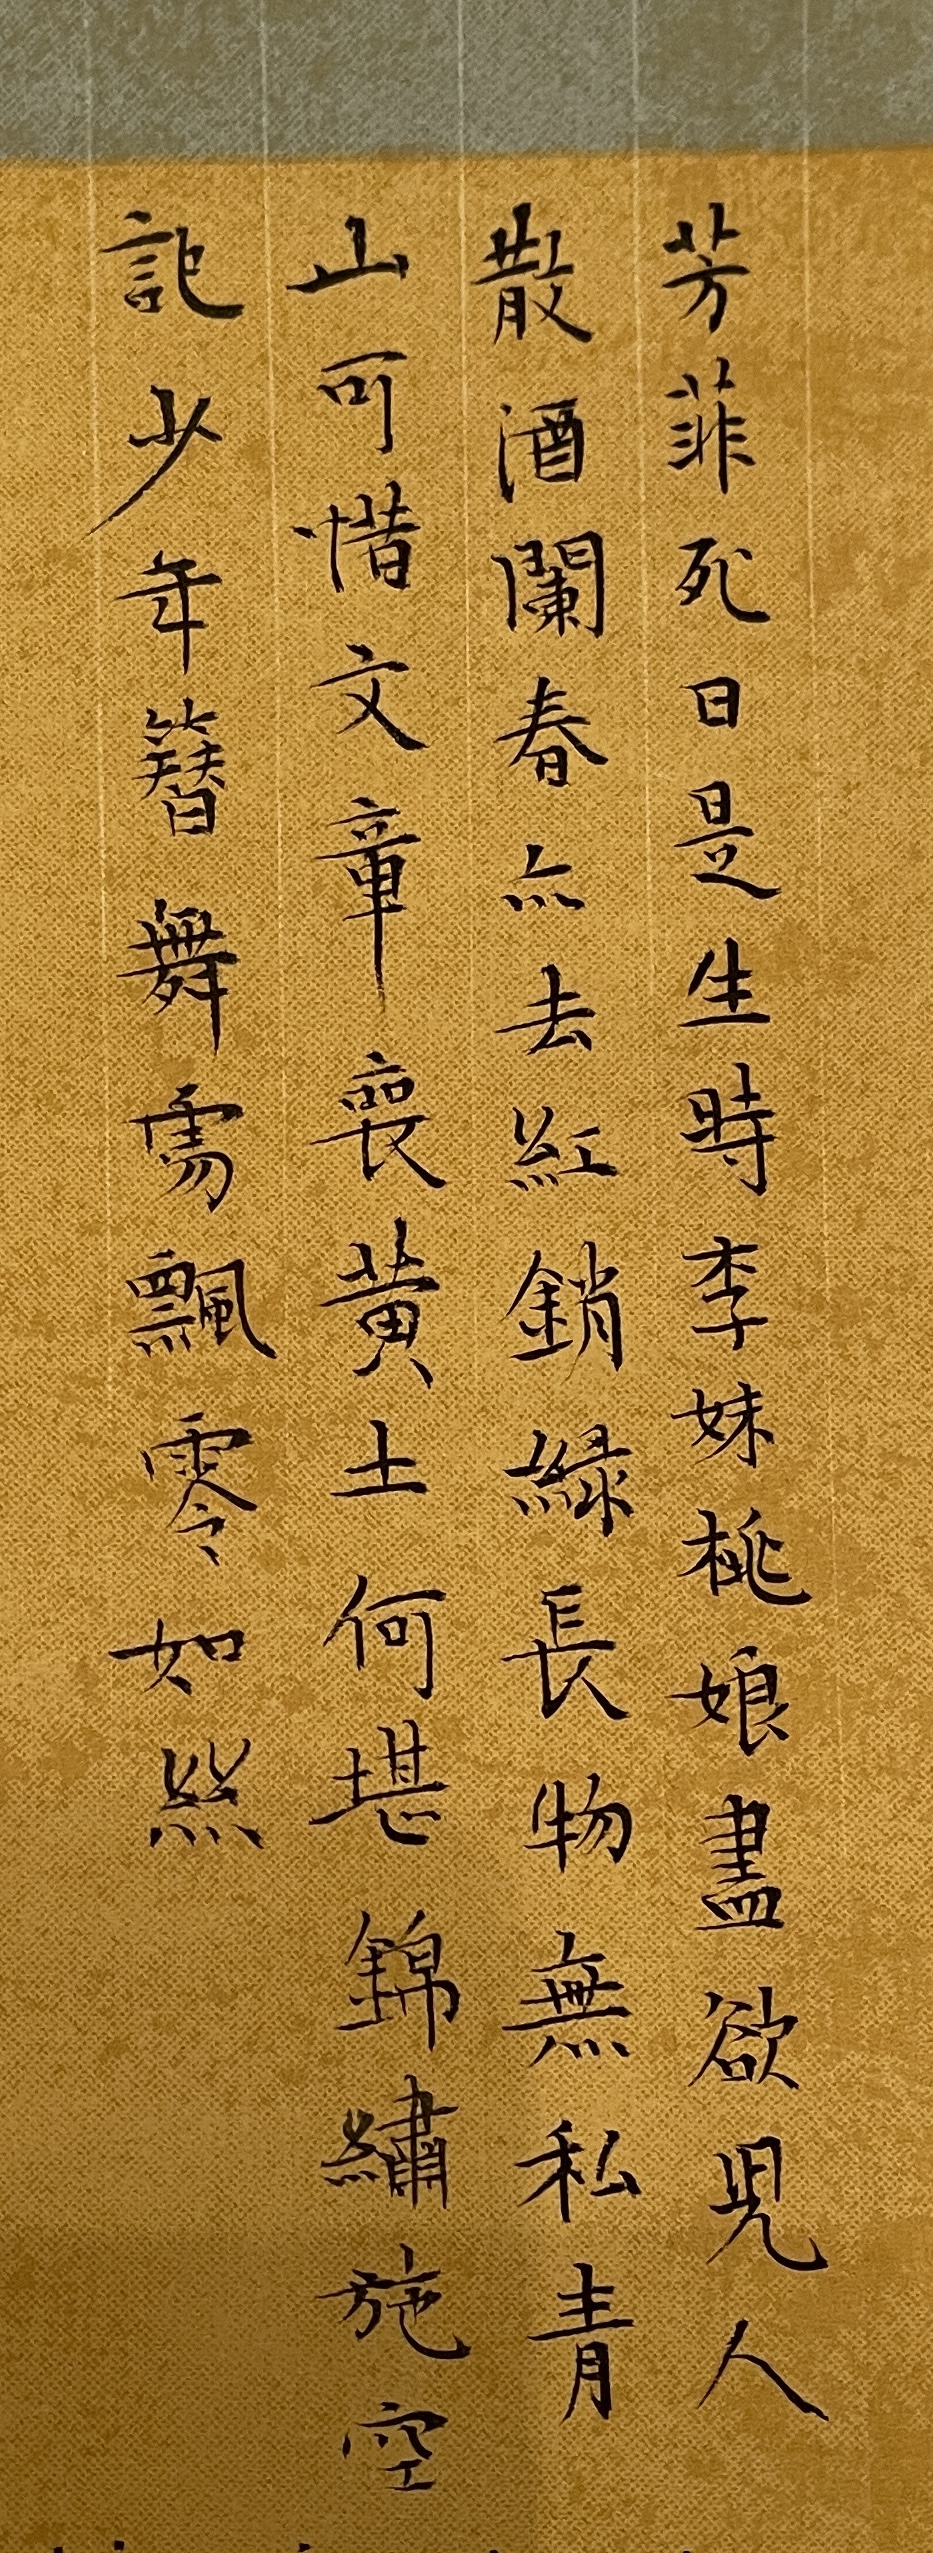 芳菲死日是生時李妹桃娘盡欲兒人
散酒闌春亦去紅銷緑長物無私青
山可惜文章喪黃土何堪錦繡施空
記少年簪舞飄零如絲